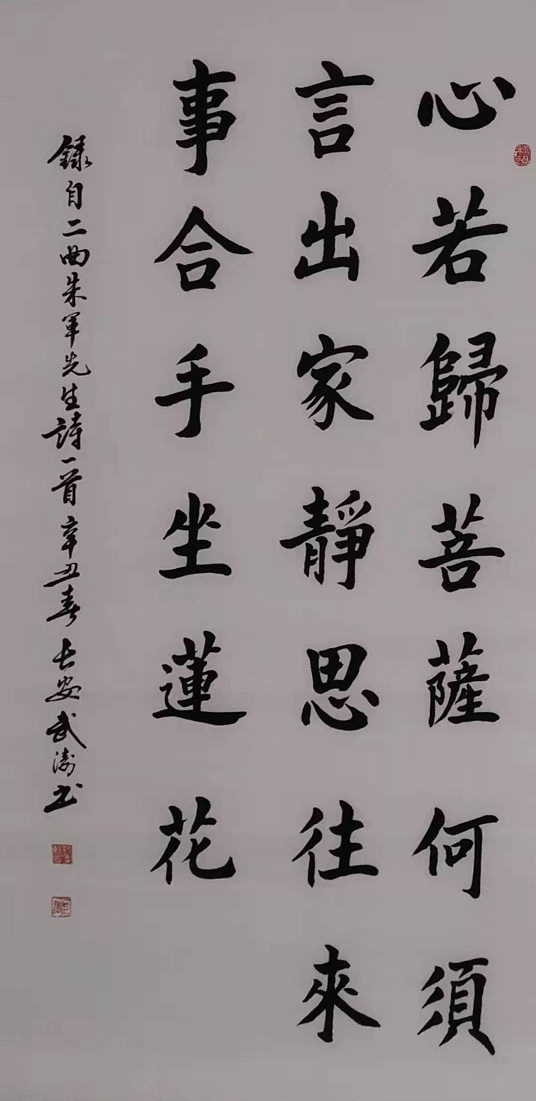 心若歸菩薩何須
言出家靜思往來
事合手坐蓮花
錄自二曲朱軍先生詩一首辛丑春長安武濤书